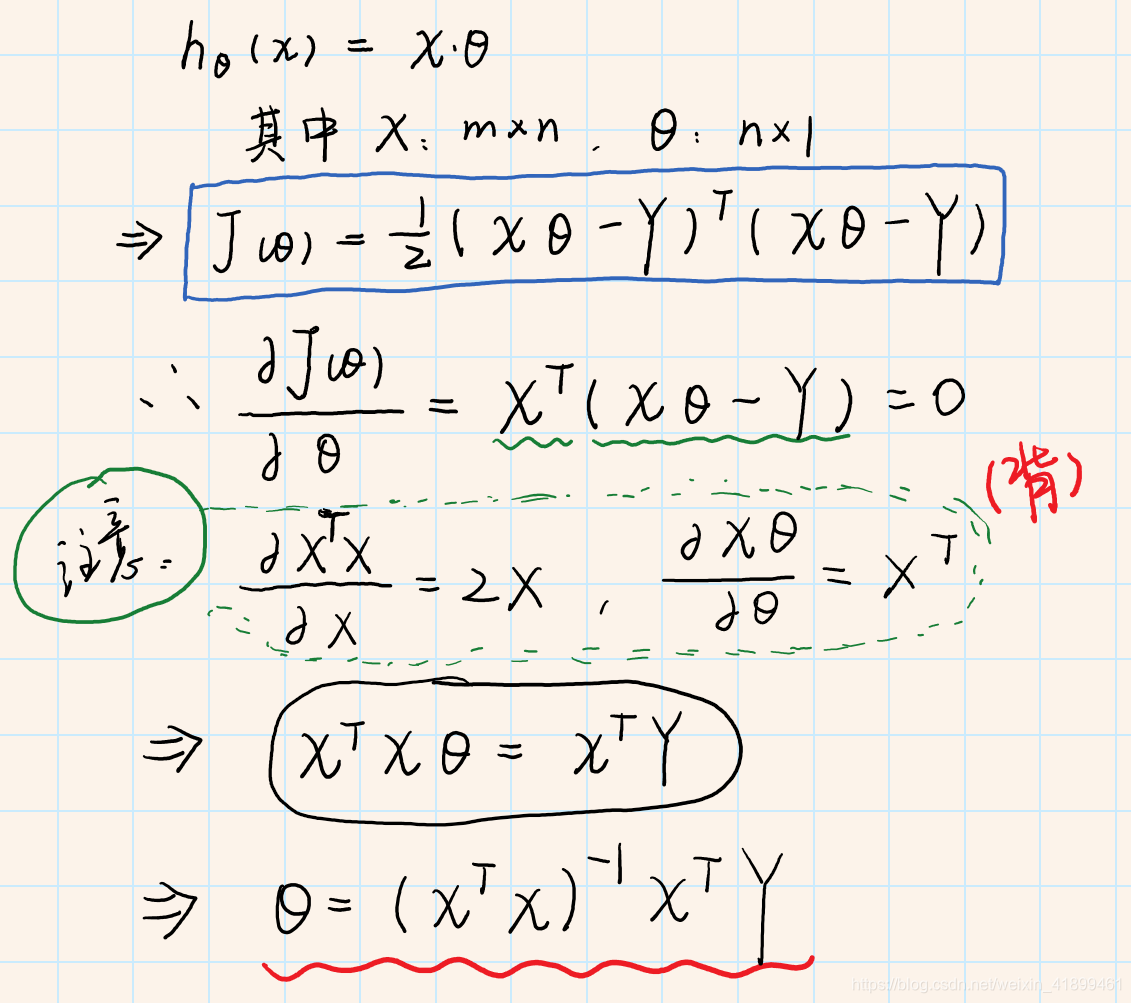 h_θ(x) = X·θ
其中 X: m×n . θ: n×1
⇒ J(θ) = 1/2 (Xθ-Y)^T (Xθ-Y)
∴ ∂J(θ)/∂θ = X^T(Xθ-Y) = 0
(背)
注意: ∂X^TX/∂X = 2X , ∂Xθ/∂θ = X^T
⇒ X^TXθ = X^TY
⇒ θ = (X^TX)^-1 X^TY
https://blog.csdn.net/weixin_41899461